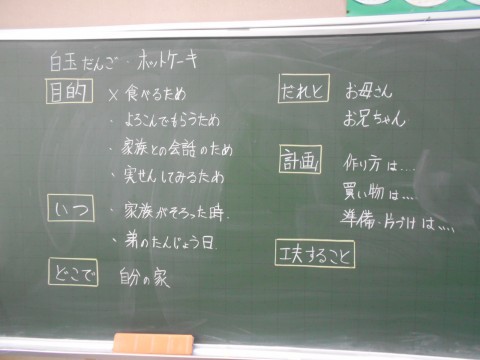 白玉だんご・ホットケーキ
目的 × 食べるため
・よろこんでもらうため
・家族との会話のため
・実せんしてみるため
いつ ・家族がそろった時.
・弟のたんじょう日.
どこで 自分の家
だれと お母さん
お兄ちゃん
計画 作り方は....
買い物は....
準備・片づけは....
工夫すること